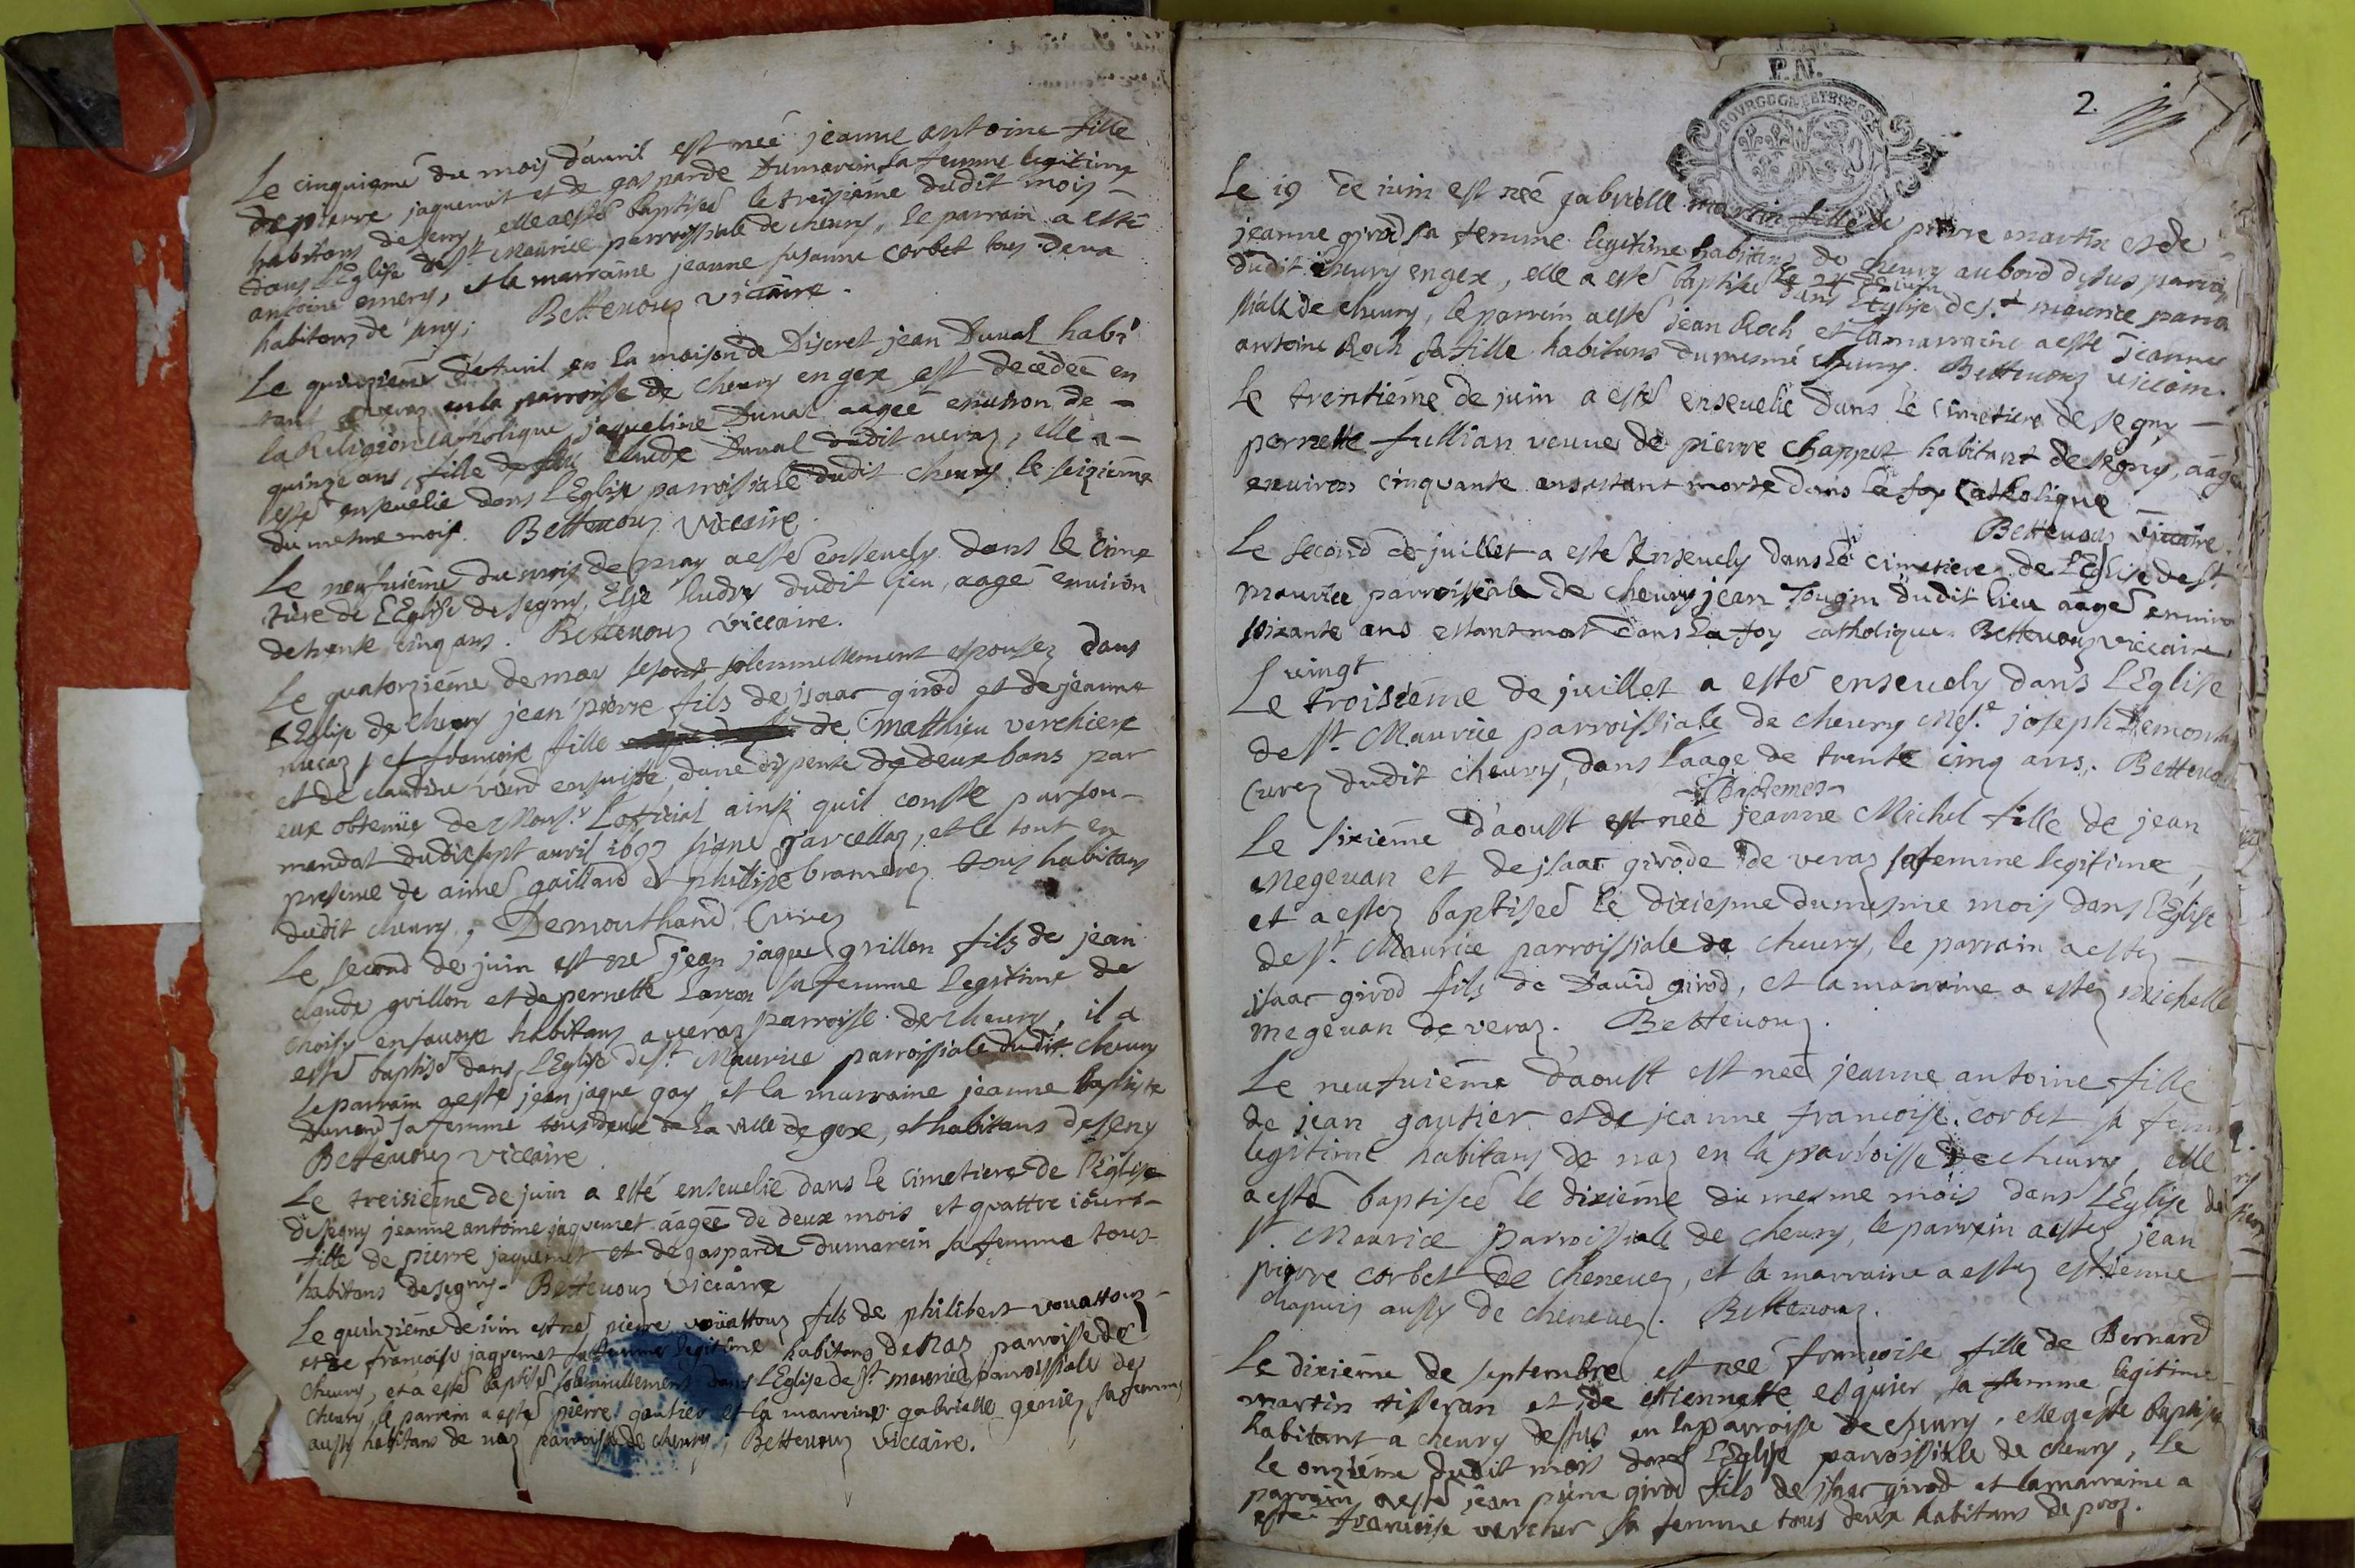 Le cinquiemé du mois d'auril est neé jeanne antoine fille
de pierre jaquemet et de gasparde Dumarcin sa femme legitime
habitans de seny, elle a esté baptiseé le treisiéme dudit mois
dans l'Eglise de st Maurice parroissiale de cheury, le parrain a esté
antoine emery, et la marraine jeanne susanne corbet tous deux
habitans de seny; Bettenouz viccaire.
Le quinziéme d'Auril en la maison de Discret jean Duual habi
tant a veraz en la parroisse de cheury en gex est decedeé en
la Religion catholique jaqueline Duual aageé enuiron de
quinze ans, fille de feu claude Duual dudit veraz, elle a
esté enseuelie dans l'Eglise parroissiale dudit cheury le seiziéme
du mesme mois. Bettenouz viccaire.
Le neufuiéme du mois de may a esté enseuely dans le cime
tiere de l'Eglise de segny, dudit lieu, aagé enuiron
de trente cinq ans. Bettenouz viccaire.
Le quatorziéme de may se sont solemnellement espousez dans
l'Eglise de cheury jean pierre fils de jsaac girod et de jeanne
et francoise fille de Matthieu verchiere
et de claudine ensuitte d'une dispense de deux bans par
eux obtenüe de Monsr. l'official ainsi quil conste par son
mandat du dixsept auril 1693 signé garcellaz, et le tout en
presence de aimé gaillard et philippe brameret tous habitans
dudit cheury, Demonthand Curez
Le second de juin est né jean jaque grillon fils de jean
claude grillon et de pernette sa femme legitime de
choisy en sauoye habitans a veraz parroisse de cheury, il a
esté baptisé dans l'Eglise de st. Maurice parroissiale dudit cheury
le parrain a esté jean jaque gay et la marraine jeanne baptiste
sa femme tous deux de la ville de gex, et habitans de seny
Bettenouz viccaire
Le treisiéme de juin a esté enseuelie dans le cimetiere de l'Eglise
de segny jeanne antoine jaquemet aageé de deux mois et quattre iours
fille de pierre jaquemet et de gasparde dumarcin sa femme tous
habitans de segny. Bettenouz viccaire
Le quinziéme de iuin est né pierre vouattouz fils de philibert vouattouz
et de francoise jaquemet sa femme legitime habitans de naz parroisse de
cheury, et a esté baptisé solennellement dans l'Eglise de st. maurice parroissiale de
cheury, le parrein a esté pierre gautier et la marreine gabrielle geniez sa femme
aussy habitans de naz parroisse de cheury; Bettenouz viccaire.
P.N.
BOVRGOGNE ET BRESSE
2
Le 19 de iuin est neé gabrielle martin fille de pierre martin et de
jeanne girod sa femme legitime habitans de cheury au bord dessus parroi
le 24 de iuin
dudit cheury en gex, elle a esté baptiseé dans l'Eglise de st maurice parroi
ssiale de cheury, le parrein a esté jean Roch et la marraine a esté jeanne
antoine Roch sa fille habitans du mesme cheury. Bettenouz viccaire.
Le trentiéme de juin a esté enseuelie dans le cimetiere de segny
pernette fullian veuue de pierre chappet habitant de segny, aagée
enuiron cinquante ans estant morte dans la foy catholique
Bettenouz viccaire.
Le second de juillet a esté enseuely dans le cimetiere de l'Eglise de st
Maurice parroissiale de cheury jean Tougin dudit lieu aagé enuiron
soixante ans estant mort dans la foy catholique. Bettenouz viccaire
vingt
Le troisiéme de juillet a esté enseuely dans l'Eglise
de st. Maurice parroissiale de cheury Mesre joseph Demonthand
Curez dudit cheury, dans l'aage de trente cinq ans. Bettenouz
Baptemes
Le sixiéme d'aoust est neé jeanne Michel fille de jean
Megeuan et de jsaac girode de veraz sa femme legitime,
et a estez baptiseé le dixiesme du mesme mois dans l'Eglise
de st. Maurice parroissiale de cheury, le parrain a estez
jsaac girod fils de Dauid girod, et la marraine a estez michelle
megeuan de veraz. Bettenouz.
Le neufuiéme d'aoust est neé jeanne antoine fille
de jean gautier et de jeanne francoise corbet sa femme
legitime habitans de naz en la parroisse de cheury, elle
a esté baptiseé le dixiéme du mesme mois dans l'Eglise de
st. Maurice parroissiale de cheury, le parrein a estez jean
pierre corbet de cheneuez, et la marraine a estez estienne
chapuis aussy de cheneuez. Bettenouz.
Le dixiéme de septembre est neé francoise fille de Bernard
martin tisseran et de estiennette esquier sa femme legitime
habitant a cheury dessus en la parroisse de cheury. elle a esté baptisée
le onziéme dudit mois dans l'Eglise parroissiale de cheury, le
parrain a esté jean pierre girod fils de jsaac girod et la marraine a
esté francoise vercher sa femme tous deux habitans de proz.